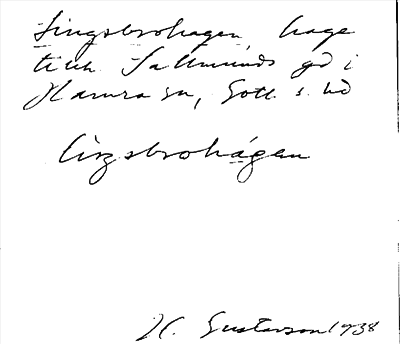 Lingsbrohagen, hage
tillh. Sallmunds gd i
Hamra sn, Gotl. s. hd
lingsbrohágen
H. Gustavson 1938